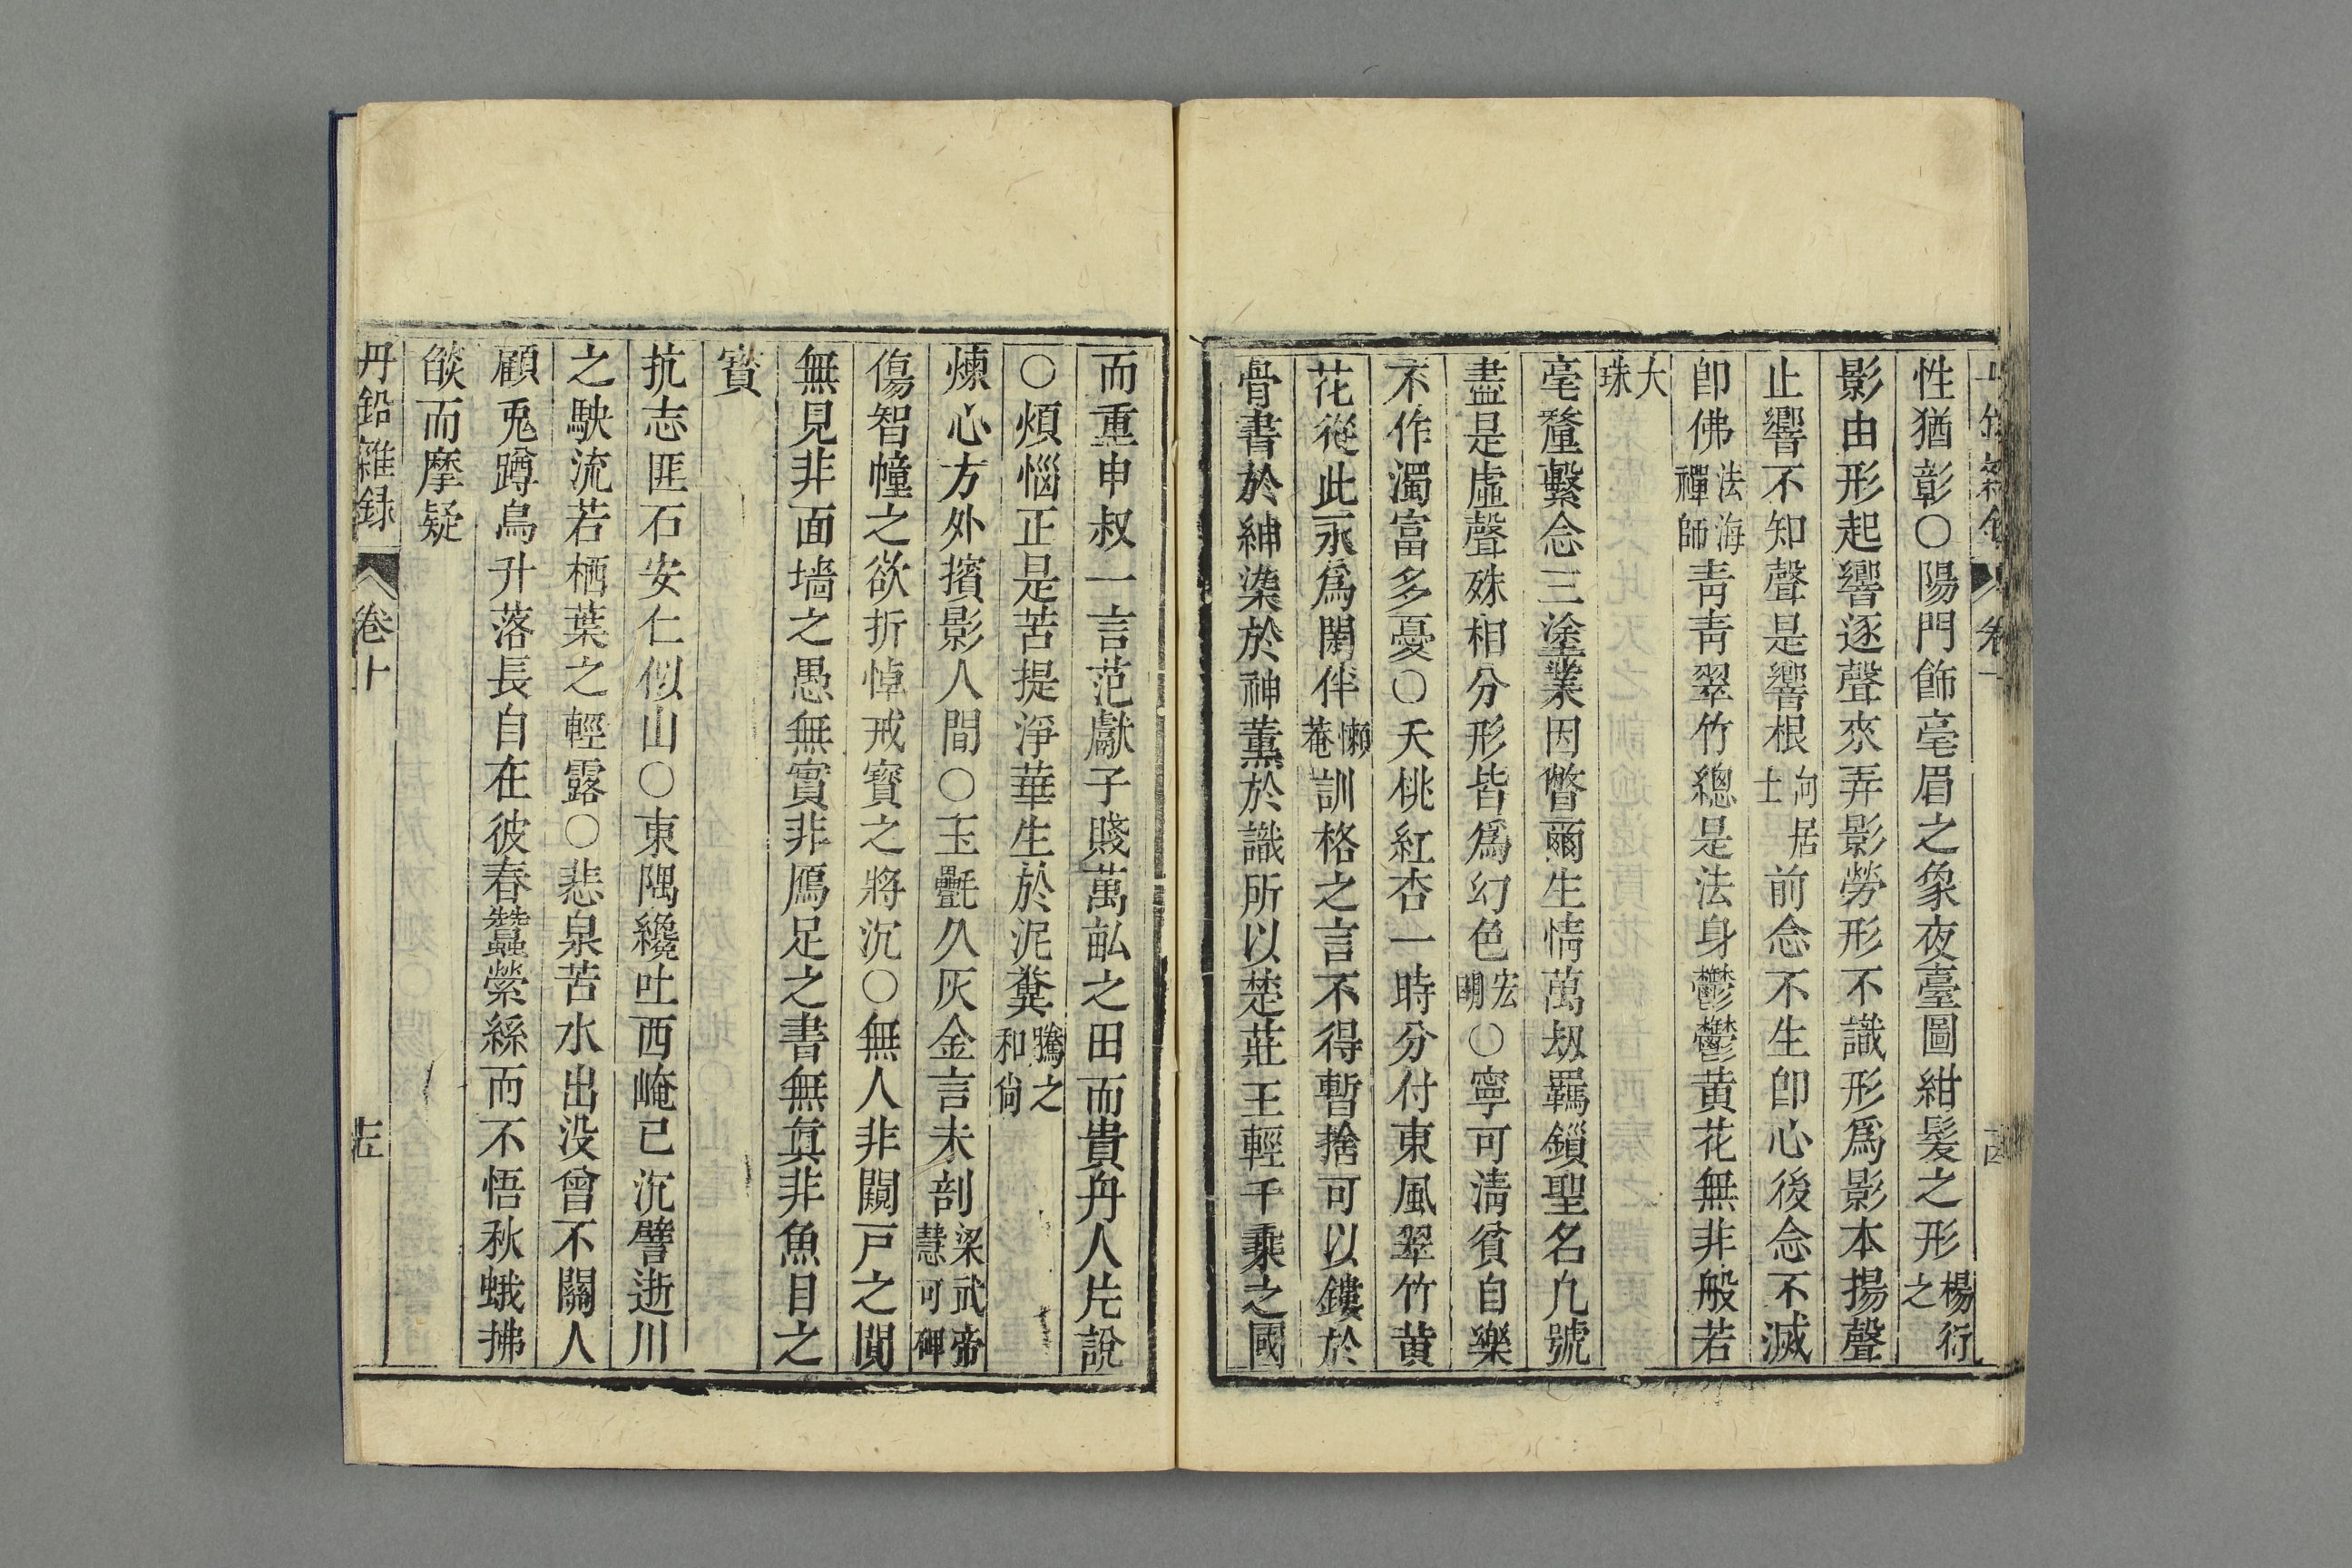 性猶彰○陽門飾毫眉之象夜臺圖紺髮之形楊衒之
影由形起響逐聲來弄影勞形不識形爲影本揚聲
止響不知聲是響根向居士前念不生卽心後念不滅
卽佛法海禪師靑靑翠竹總是法身鬱鬱黃花無非般若
大珠
毫釐繫念三塗業因瞥爾生情萬劫羈鎖聖名凡號
盡是虛聲殊相分形皆爲幻色宏明○寧可淸貧自樂
不作濁富多憂○夭桃紅杏一時分付東風翠竹黃
花從此永爲閑伴懶菴訓格之言不得暫捨可以鏤於
骨書於紳染於神薰於識所以楚莊王輕千乘之國
而重申叔一言范獻子賤萬畝之田而貴舟人片說
○煩惱正是菩提淨華生於泥糞騰騰和尙
煉心方外擯影人間○玉㲲久灰金言未剖梁武帝慧可碑
傷智幢之欲折悼戒寶之將沉○無人非闚戸之閴
無見非面墻之愚無實非鴈足之書無眞非魚目之
寶
抗志匪石安仁似山○東隅纔吐西崦已沉譬逝川
之駛流若栖葉之輕露○悲泉苦水出没曾不關人
顧兎蹲烏升落長自在彼春蠶縈絲而不悟秋蛾拂
燄而摩疑
丹鉛雜録 卷十 十五